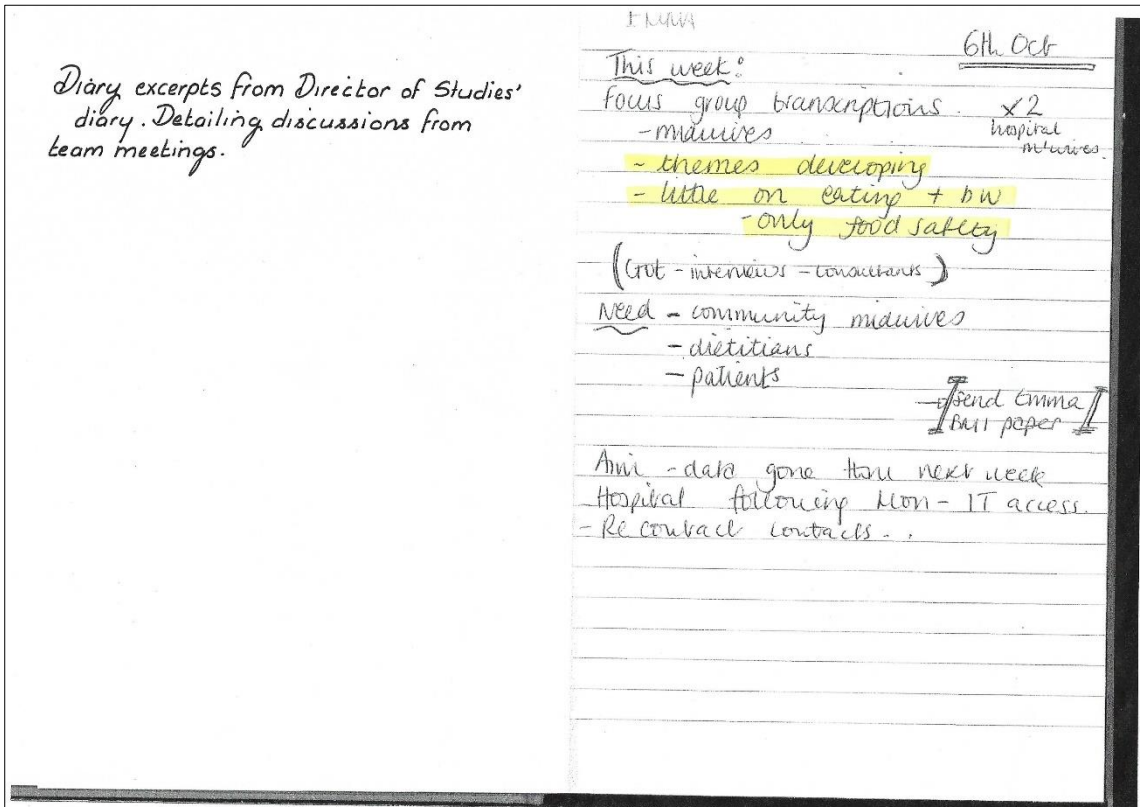 Diary excerpts from Director of Studies'
diary. Detailing discussions from
team meetings.
EMMA
6th Oct
This week:
Focus group transcriptions. x2
hospital
m'wives.
- midwives
- themes developing
- little on eating + BW
- only food safety
(Got - interviews - consultants)
Need - community midwives
- dietitians
- patients
Send Emma
paper
Aim - data gone thru next week
Hospital following Mon - IT access.
- Re contact contacts..